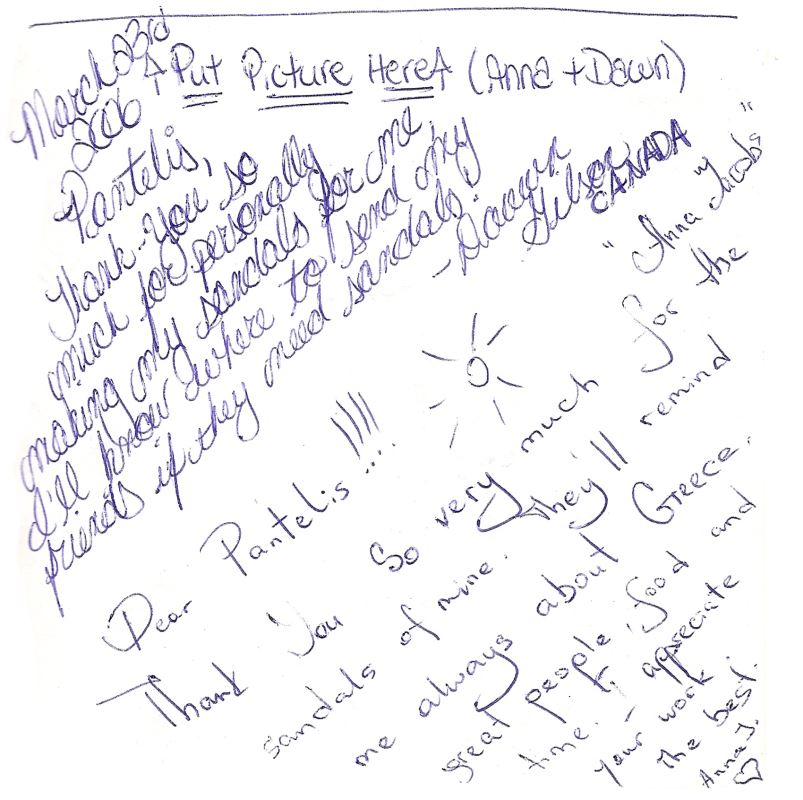 March 23rd
2006
↑ Put Picture Here ↑ (Anna + Dawn)
Pantelis,
Thank-you so
much for personally
making my sandals for me.
I'll know where to send my
friends if they need sandals.
-Dawn
CANADA
Dear Pantelis !!!!
Thank You So very much for the
sandals of mine. They'll remind
me always about Greece.
great people, food and
time. I appreciate
your work
the best.
Anna J.